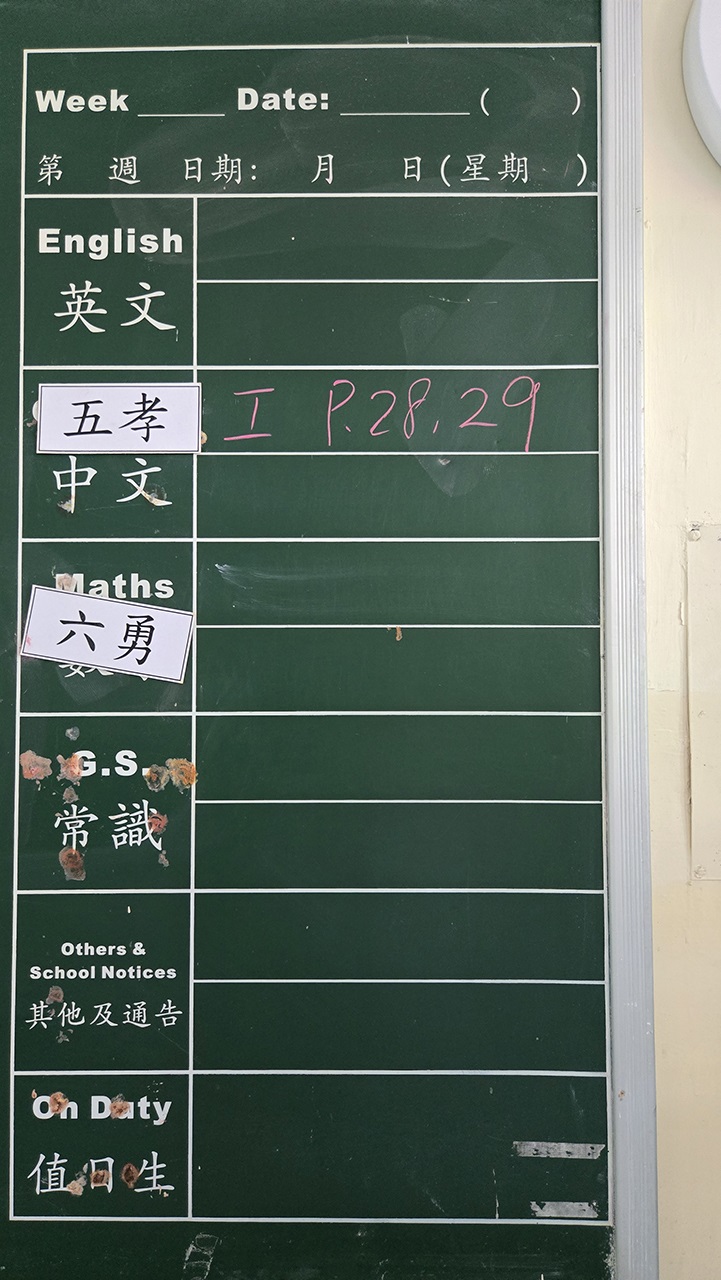 Week ______ Date: _________ (   )
第 週 日期: 月 日(星期 )
English
英文
五孝
工 P.28,29
中文
Maths
六勇
G.S.
常識
Others &
School Notices
其他及通告
On Duty
值日生